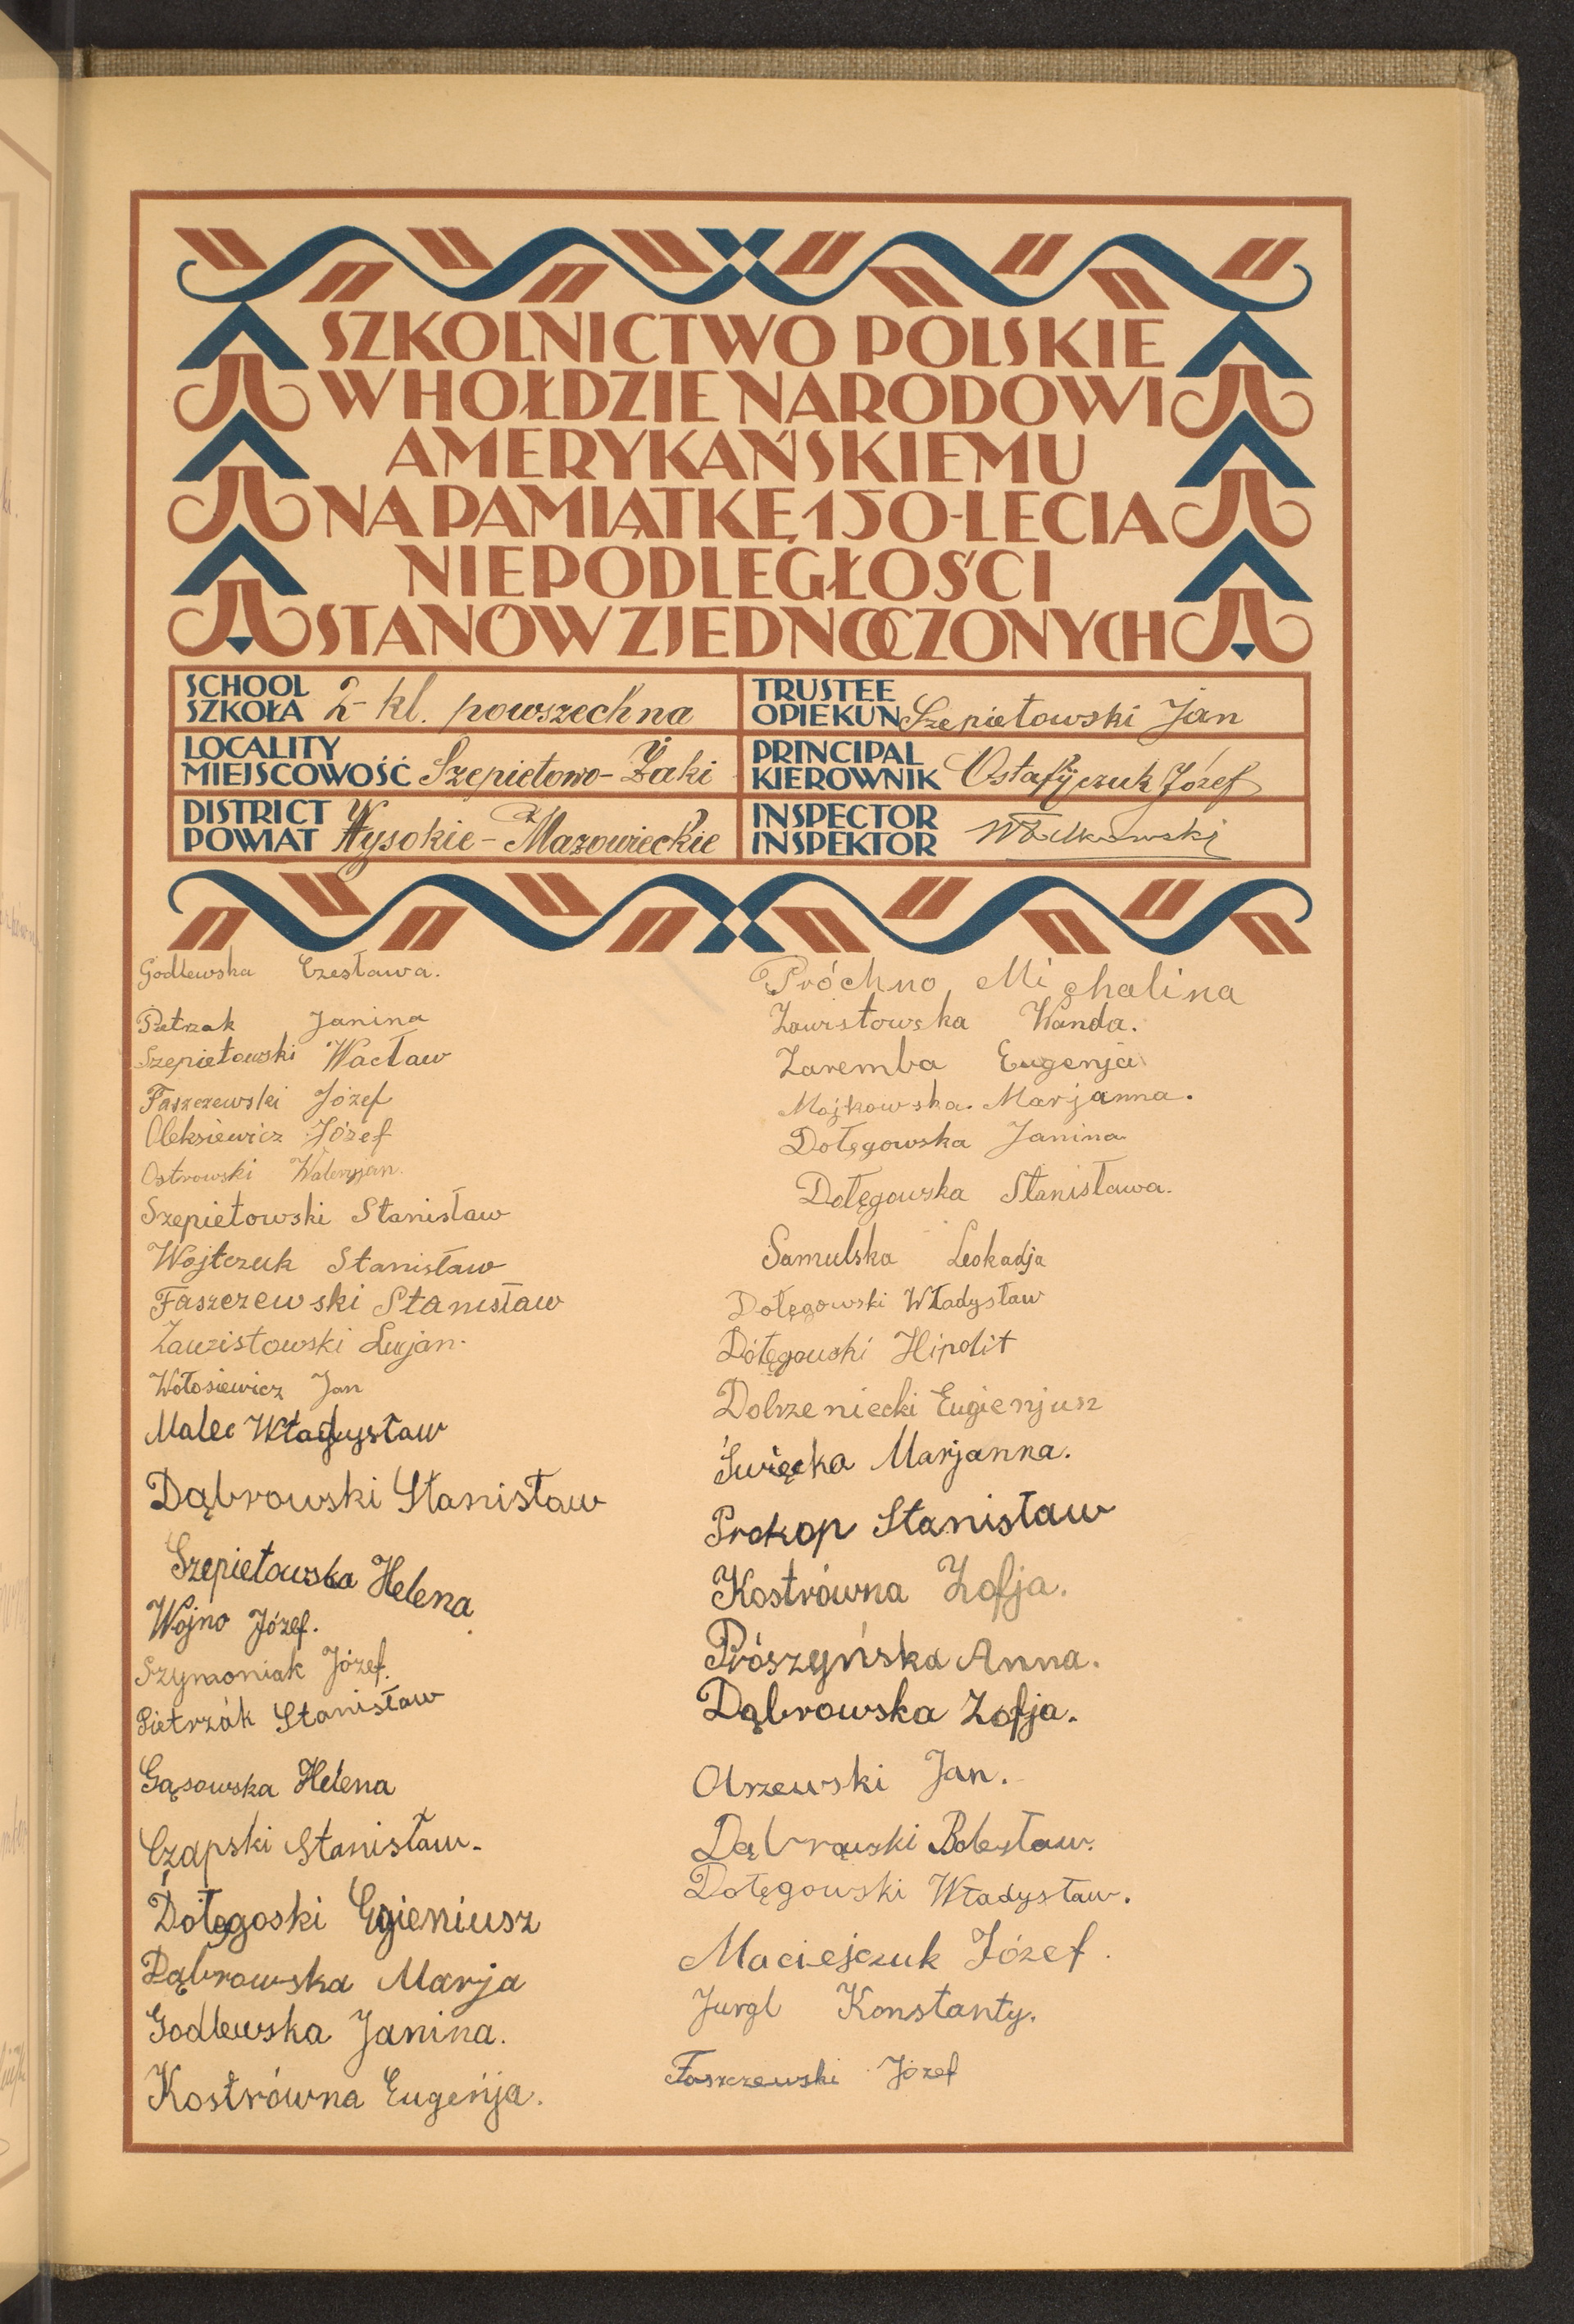 SZKOLNICTWO POLSKIE
W HOŁDZIE NARODOWI
AMERYKAŃSKIEMU
NA PAMIĄTKĘ 150-LECIA
NIEPODLEGŁOŚCI
STANÓW ZJEDNOCZONYCH
SCHOOL
SZKOŁA 2-kl. powszechna
TRUSTEE
OPIEKUN Szepietowski Jan
LOCALITY
MIEJSCOWOŚĆ Szepietowo-Żaki
PRINCIPAL
KIEROWNIK Ostafijczuk Józef
DISTRICT
POWIAT Wysokie-Mazowieckie
INSPECTOR
INSPEKTOR
Godlewska Czesława.
Pietrzak Janina
Szepietowski Wacław
Faszczewski Józef
Oleksiewicz Józef
Ostrowski Waleryjan.
Szepietowski Stanisław
Wojtczuk Stanisław
Faszczewski Stanisław
Zawistowski Lucjan.
Wołosiewicz Jan
Malec Władysław
Dąbrowski Stanisław
Szepietowska Helena
Wojno Józef.
Szymoniak Józef.
Pietrzak Stanisław
Gąsowska Helena
Czapski Stanisław.
Dołęgoski Egieniusz
Dąbrowska Marja
Godlewska Janina.
Kostrówna Eugenja.
Próchno Michalina
Zawistowska Wanda.
Zaremba Eugenja
Mojkowska. Marjanna.
Dołęgowska Janina
Dołęgowska Stanisława.
Samulska Leokadja
Dołęgowski Władysław
Dołęgowski Hipolit
Dobrzeniecki Eugienjusz
Święcka Marjanna.
Prokop Stanisław
Kostrówna Zofja.
Prószyńska Anna.
Dąbrowska Zofja.
Olszewski Jan.
Dąbrowski Bolesław.
Dołęgowski Władysław.
Maciejczuk Józef.
Jurgl Konstanty.
Faszczewski Józef